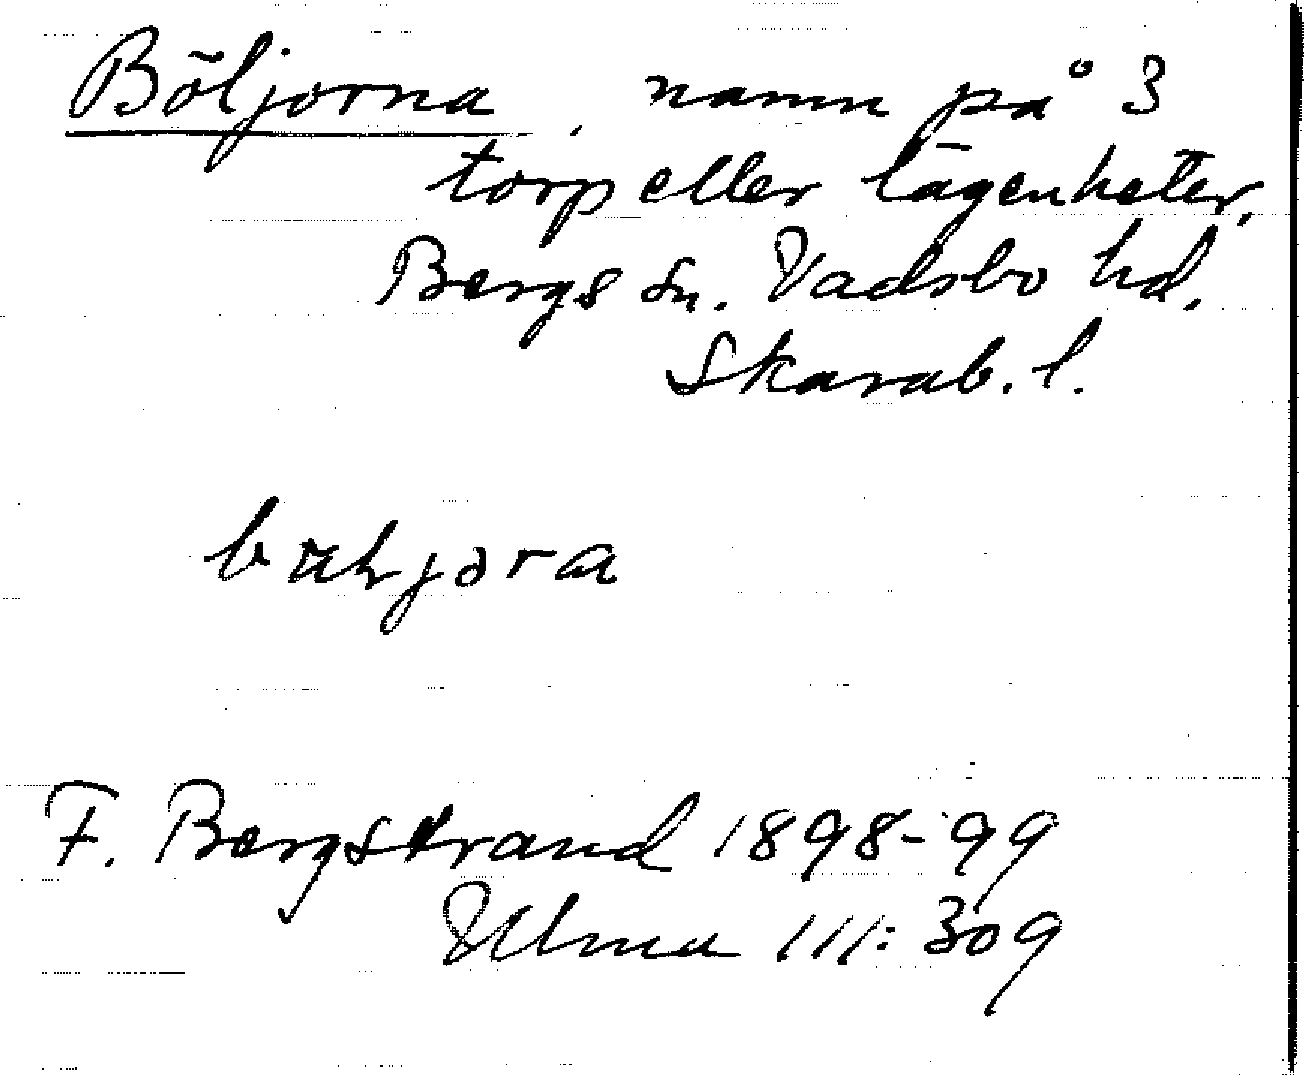 Böljorna, namn på 3
torp eller lägenheter,
Bergs sn. Vadsbo hd.
Skarab. l.
F. Bergstrand 1898-99
Ulma 111:309